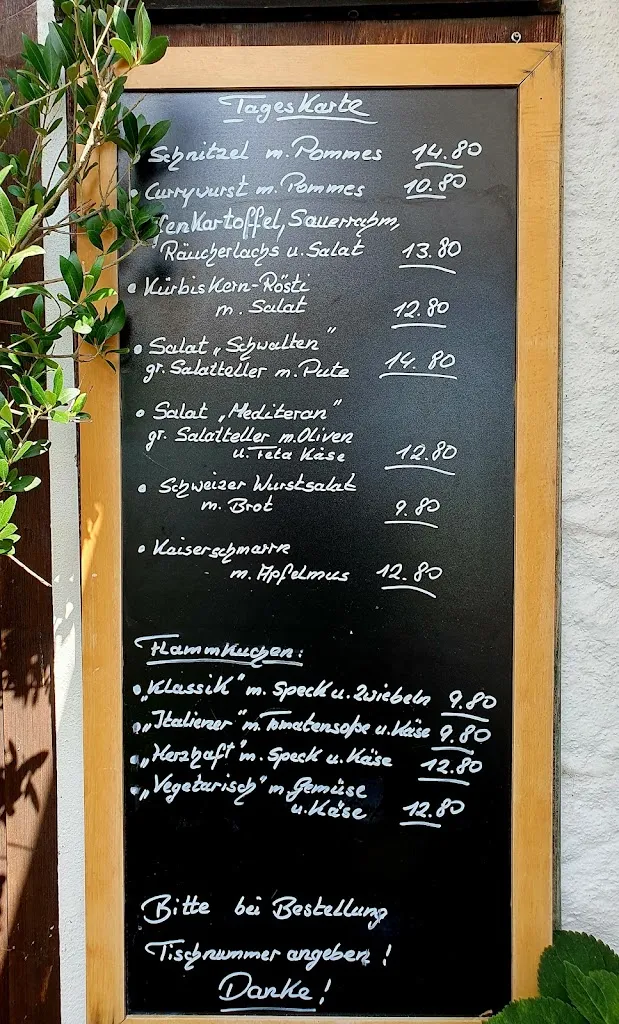 TagesKarte
Schnitzel m. Pommes 14.80
• Currywurst m. Pommes 10.80
Sauerrahm,
Räucherlachs u. Salat 13.80
• Kürbiskern-Rösti
m. Salat 12.80
• Salat „Schwalten"
gr. Salatteller m. Pute 14.80
• Salat „Mediteran"
gr. Salatteller m. Oliven
u. Feta Käse 12.80
• Schweizer Wurstsalat
m. Brot 9.80
• Kaiserschmarrn
m. Apfelmus 12.80
Flammkuchen:
• „Klassik" m. Speck u. Zwiebeln 9.80
• „Italiener" m. Tomatensoße u. Käse 9.80
• „Herzhaft" m. Speck u. Käse 12.80
• „Vegetarisch" m. Gemüse
u. Käse 12.80
Bitte bei Bestellung
Tischnummer angeben!
Danke!